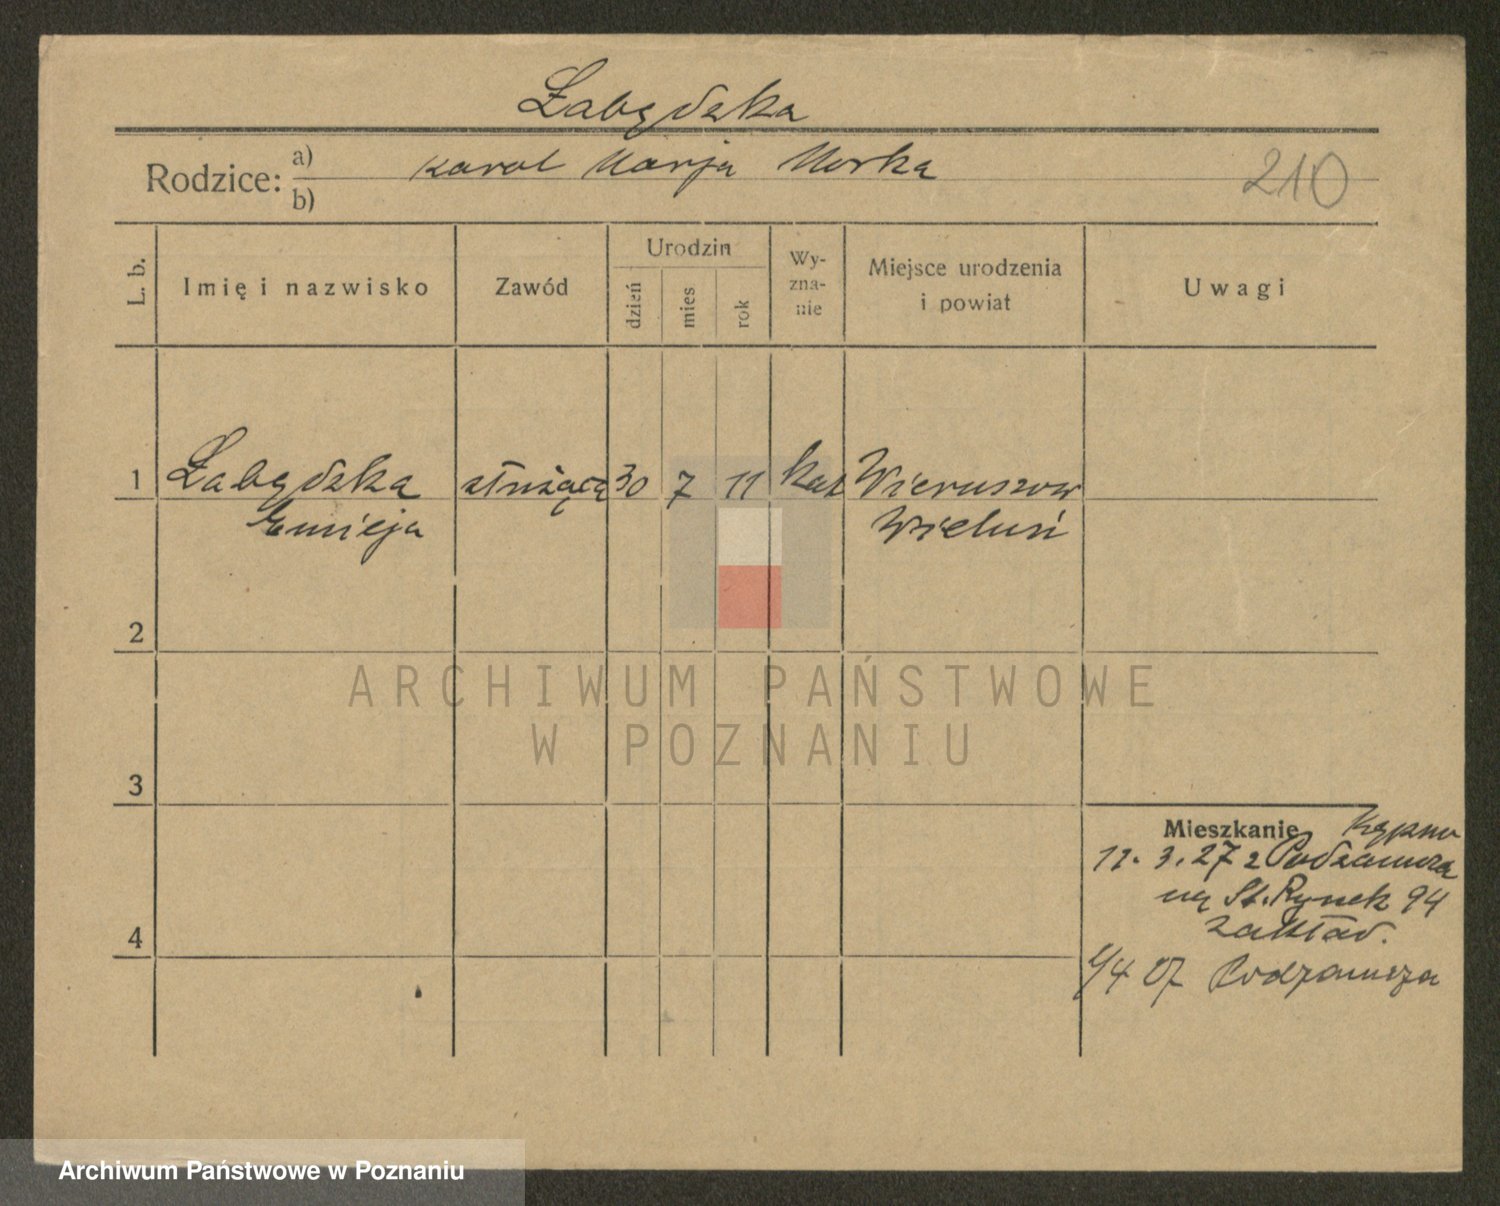 Łabędzka
Rodzice: a) b) Karol Marja Morka
210
L. b.
Imię i nazwisko
Zawód
Urodzin
dzień
mies
rok
Wy-
zna-
nie
Miejsce urodzenia
i powiat
Uwagi
1 Łabędzka służąca 30 7 11 kat Wieruszow
Emieja Wieluń
2
3
4
Mieszkanie Kępno
11. 3. 27 z Podzamcza
na St. Rynek 94
zakład.
1/4 27 Podzamcza
ARCHIWUM PAŃSTWOWE
W POZNANIU
Archiwum Państwowe w Poznaniu